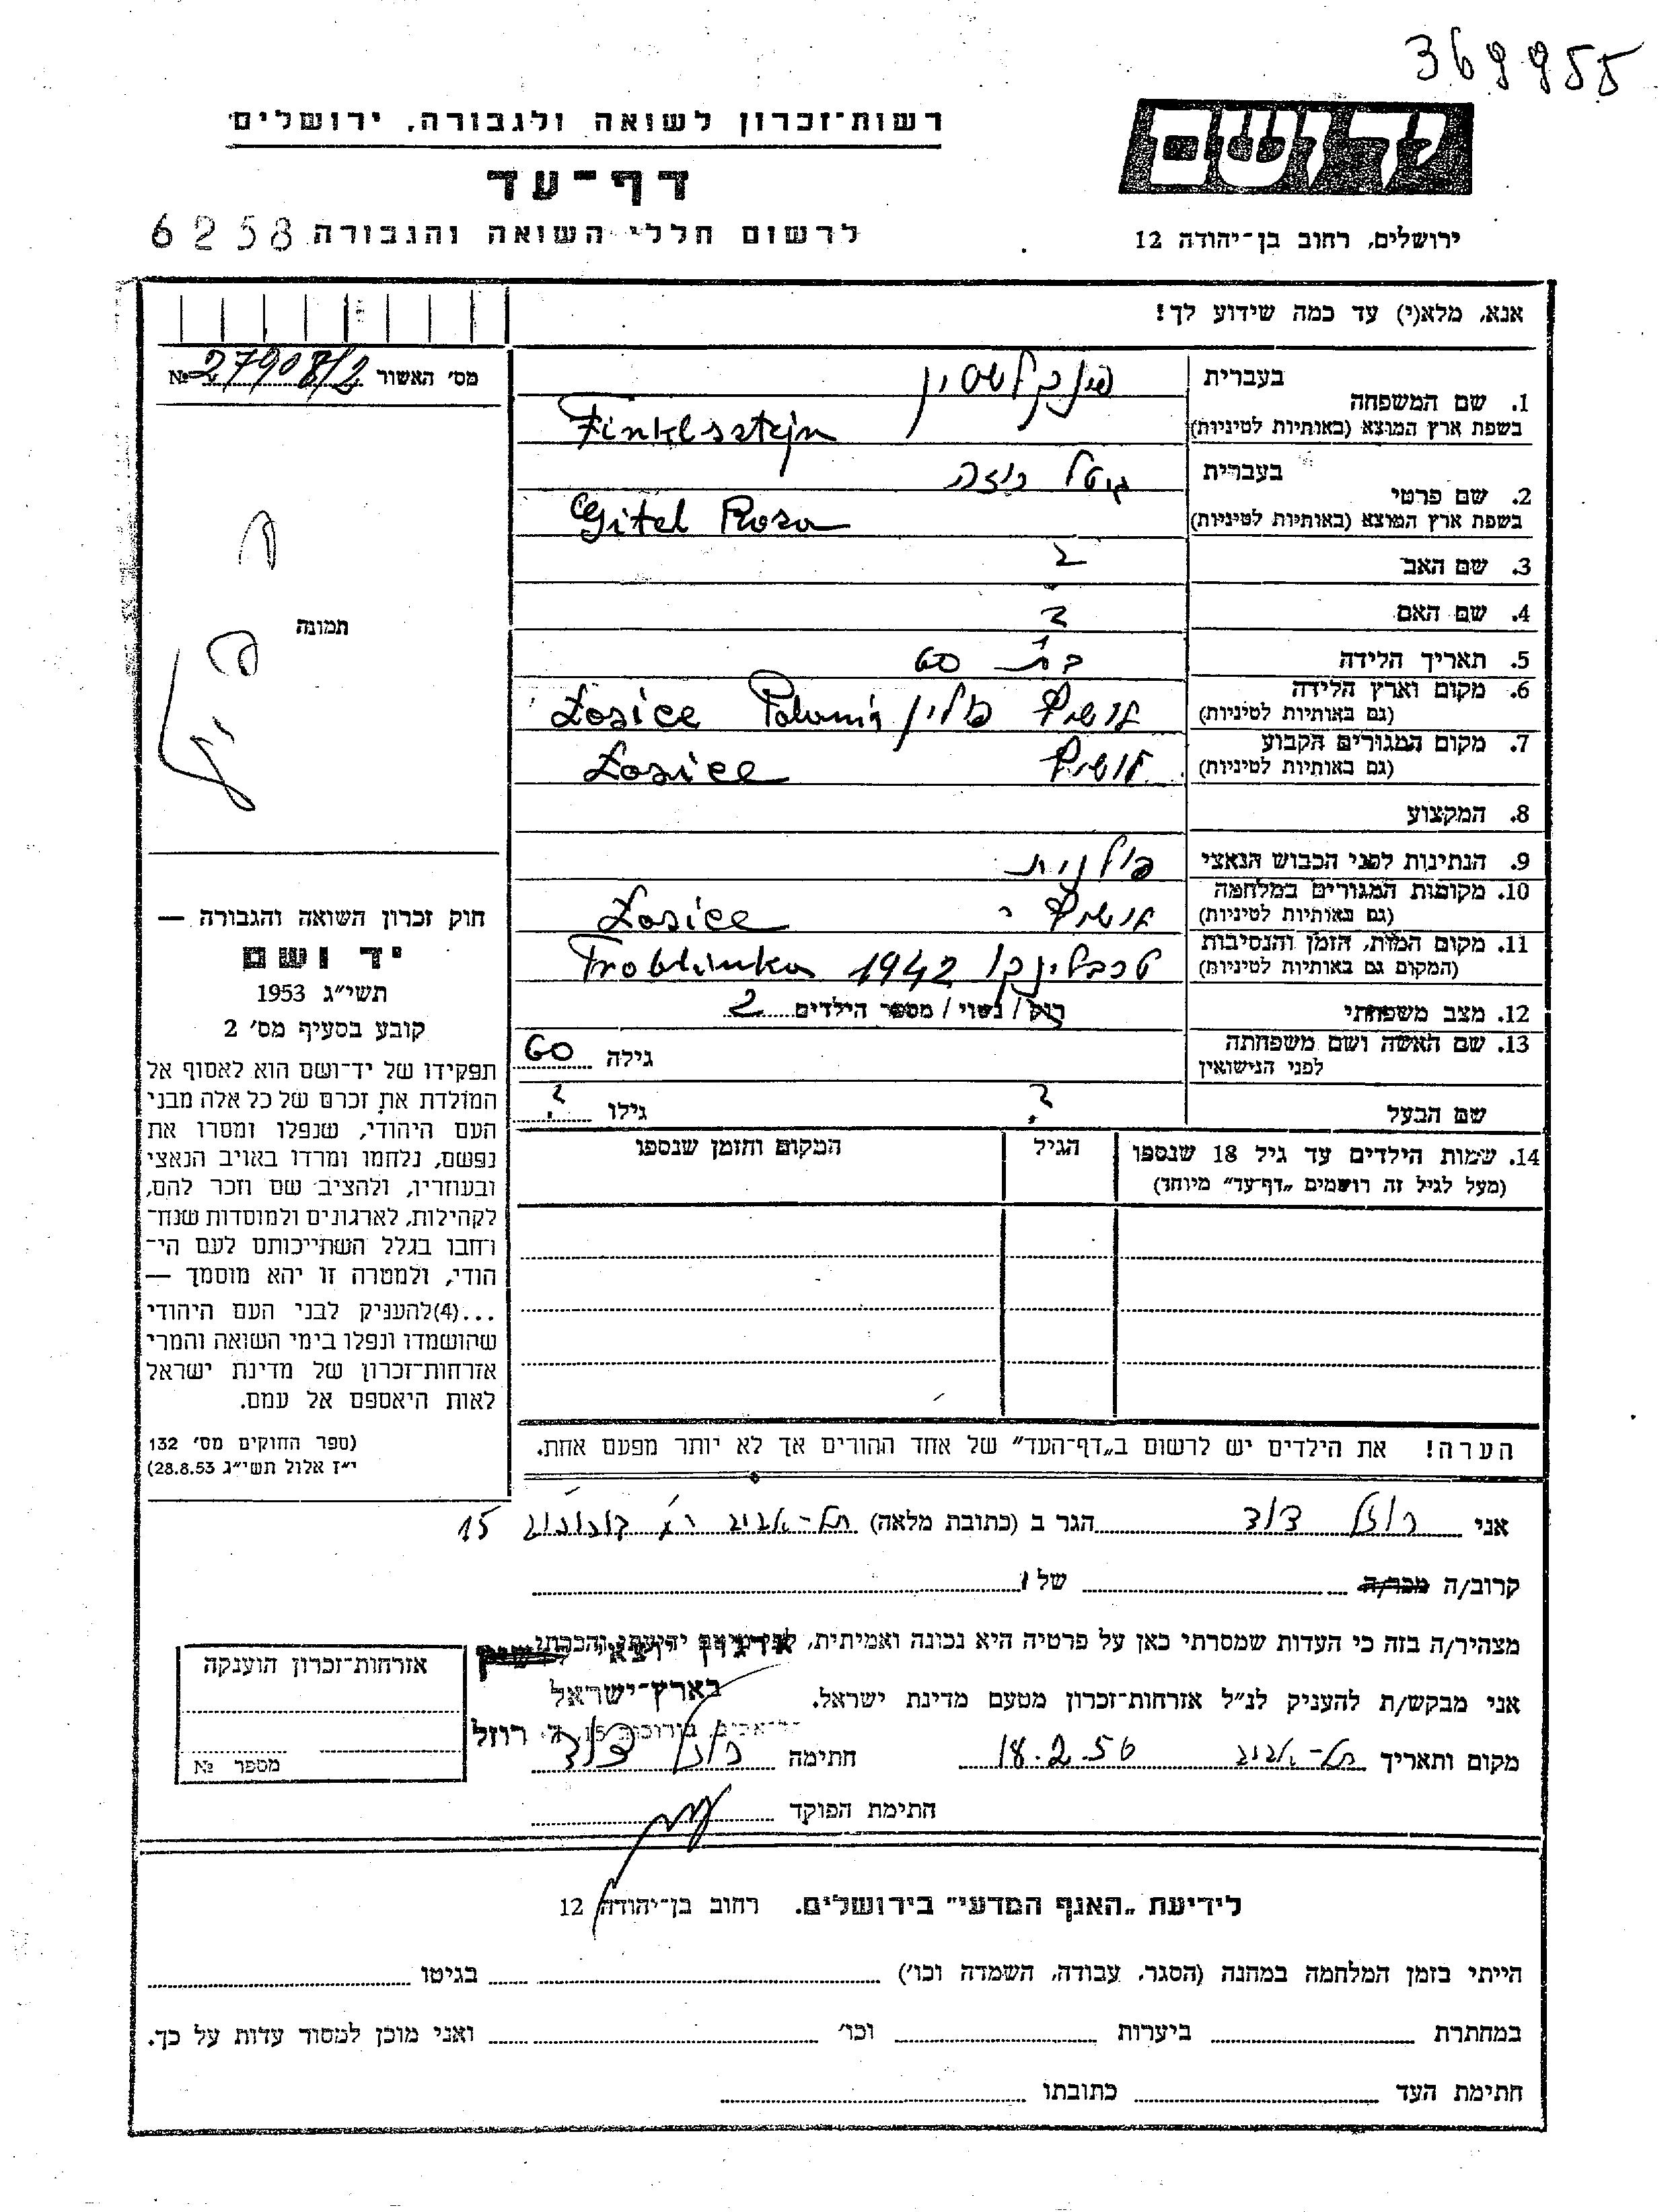 369955
רשות־זכרון לשואה ולגבורה, ירושלים
דף־עד
לרשום חללי השואה והגבורה 6258
ידושם
ירושלים, רחוב בן־יהודה 12
אנא, מלא(י) עד כמה שידוע לך!
מס' האשור № 27908/2
1. שם המשפחה
בעברית פינקלשטיין
בשפת ארץ המוצא (באותיות לטיניות) Finkelsztejn
2. שם פרטי
בעברית גיטל רוזה
בשפת ארץ המוצא (באותיות לטיניות) Gitel Roza
3. שם האב ?
4. שם האם ?
5. תאריך הלידה בת 60
6. מקום וארץ הלידה
(גם באותיות לטיניות) לושיץ פולין Łosice Polonia
7. מקום המגורים הקבוע
(גם באותיות לטיניות) לושיץ Łosice
8. המקצוע
9. הנתינות לפני הכבוש הנאצי פולנית
10. מקומות המגורים במלחמה
(גם באותיות לטיניות) לושיץ Łosice
11. מקום המות, הזמן והנסיבות
(המקום גם באותיות לטיניות) טרבלינקה 1942 Treblinka
12. מצב משפחתי רוק / נשוי / מספר הילדים 2
13. שם האשה ושם משפחתה
לפני הנישואין גילה 60
שם הבעל ? גילו ?
14. שמות הילדים עד גיל 18 שנספו
(מעל לגיל זה רושמים „דף־עד" מיוחד)
הגיל
המקום והזמן שנספו
הערה! את הילדים יש לרשום ב„דף־העד" של אחד ההורים אך לא יותר מפעם אחת.
תמונה
חוק זכרון השואה והגבורה —
יד ושם
תשי"ג 1953
קובע בסעיף מס' 2
תפקידו של יד־ושם הוא לאסוף אל
המולדת את זכרם של כל אלה מבני
העם היהודי, שנפלו ומסרו את
נפשם, נלחמו ומרדו באויב הנאצי
ובעוזריו, ולהציב שם וזכר להם,
לקהילות, לארגונים ולמוסדות שנח־
רחבו בגלל השתייכותם לעם הי־
הודי, ולמטרה זו יהא מוסמך —
...(4)להעניק לבני העם היהודי
שהושמדו ונפלו בימי השואה והמרי
אזרחות־זכרון של מדינת ישראל
לאות היאספם אל עמם.
(ספר החוקים מס' 132
י"ז אלול תשי"ג 28.8.53)
אני רוזל דוד הגר ב (כתובת מלאה) תל-אביב רח' בורוכוב 15
קרוב/ה מכר/ה של
מצהיר/ה בזה כי העדות שמסרתי כאן על פרטיה היא נכונה ואמיתית, לפי מיטב ידיעתי והכרתי.
ארגון יוצאי
בארץ־ישראל
תל־אביב, בורוכוב 15, ד. רוזל
אני מבקש/ת להעניק לנ"ל אזרחות־זכרון מטעם מדינת ישראל.
מקום ותאריך תל-אביב 18.2.56 חתימה רוזל דוד
חתימת הפוקד
אזרחות־זכרון הוענקה
מספר №
לידיעת „האגף המדעי" בירושלים. רחוב בן־יהודה 12
הייתי בזמן המלחמה במחנה (הסגר, עבודה, השמדה וכו') בגיטו
במחתרת ביערות וכו' ואני מוכן למסור עדות על כך.
חתימת העד כתובתו